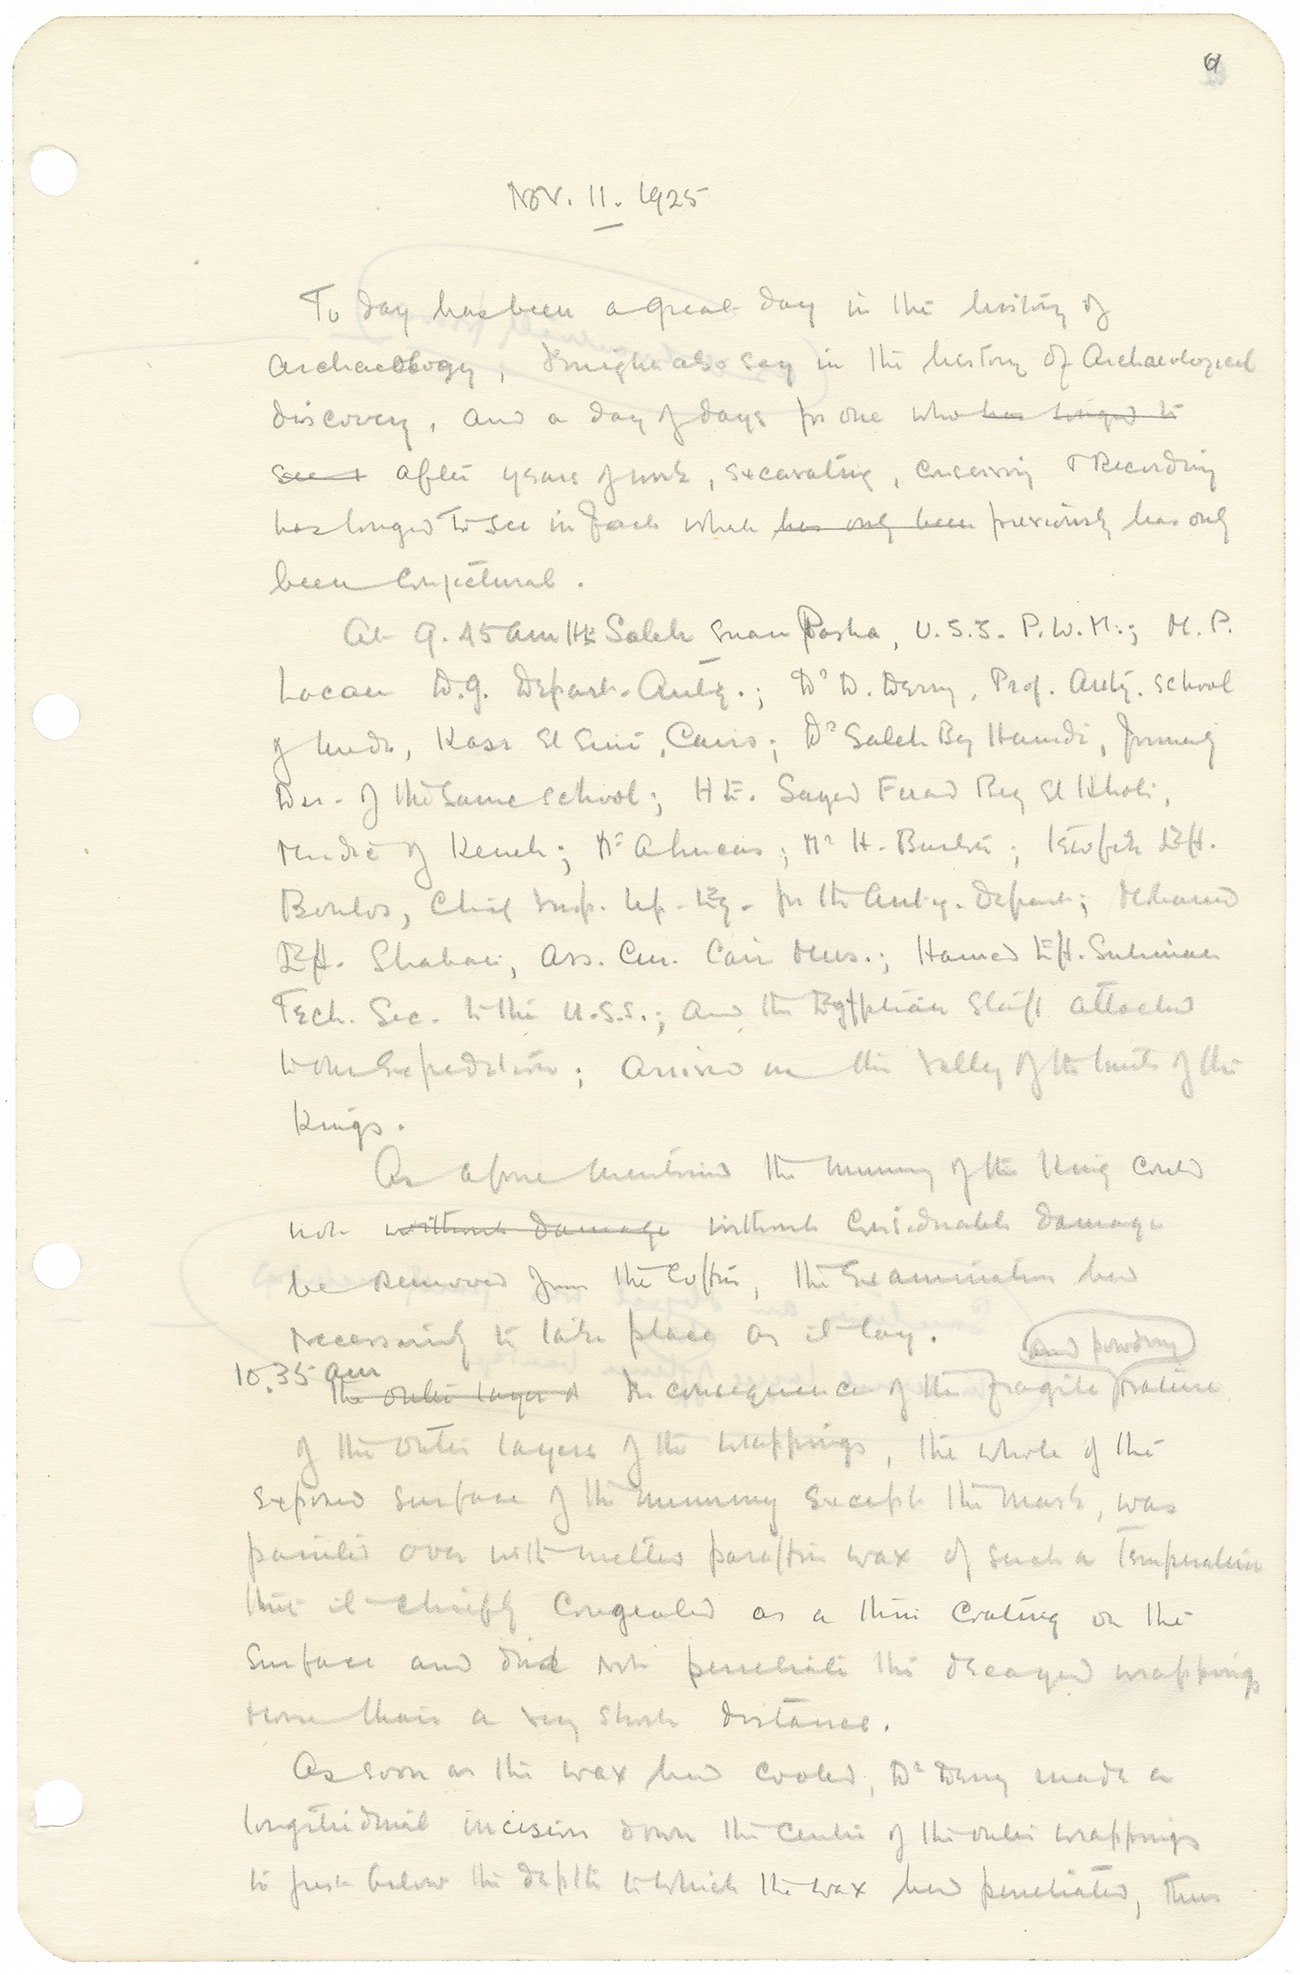 Nov. 11. 1925
To day has been a great day in the history of
Archaeology, I might also say in the history of Archaeological
discovery, and a day of days for one who has longed to
see it after years of work, excavating, conserving & Recording
has longed to see in fact what has only been previously has only
been conjectural.
At 9.45 am HE Saleh Enan Pasha, U.S.S. P.W.M.; M. P.
Lacau D.G. Depart. Antiq.; Dr D. Derry, Prof. Anty. School
of Meds, Kasr El Eini, Cairo; Dr Saleh Bey Hamdi, formerly
Dir. of the same school; H E. Sayed Fuad Bey El Kholi,
Mudir of Keneh; Mr A Lucas; Mr H. Burton; Tewfik Eff.
Boulos, Chief Insp. Up. Eg. for the Antiq. Depart; Mohamed
Eff. Shaban, Ass. Cur. Cairo Mus.; Hamed Eff. Suliman
Tech. Sec. to the U.S.S.; and the Egyptian Staff attached
to the Expedition; arrived in the Valley of the tombs of the
Kings.
As afore mentioned the mummy of the King could
not without damage without considerable damage
be removed from the Coffin, the Examination had
necessarily to take place as it lay.
and powdery
10.35 am
The outer layer of In consequence of the fragile nature
of the outer layers of the wrappings, the whole of the
exposed surface of the mummy except the mask, was
painted over with melted paraffin wax of such a Temperature
that it chiefly congealed as a thin coating on the
Surface and did not penetrate the decayed wrappings
more than a very short distance.
As soon as the wax had cooled, Dr Derry made a
longitudinal incision down the centre of the outer wrappings
to just below the depth to which the wax had penetrated, thus